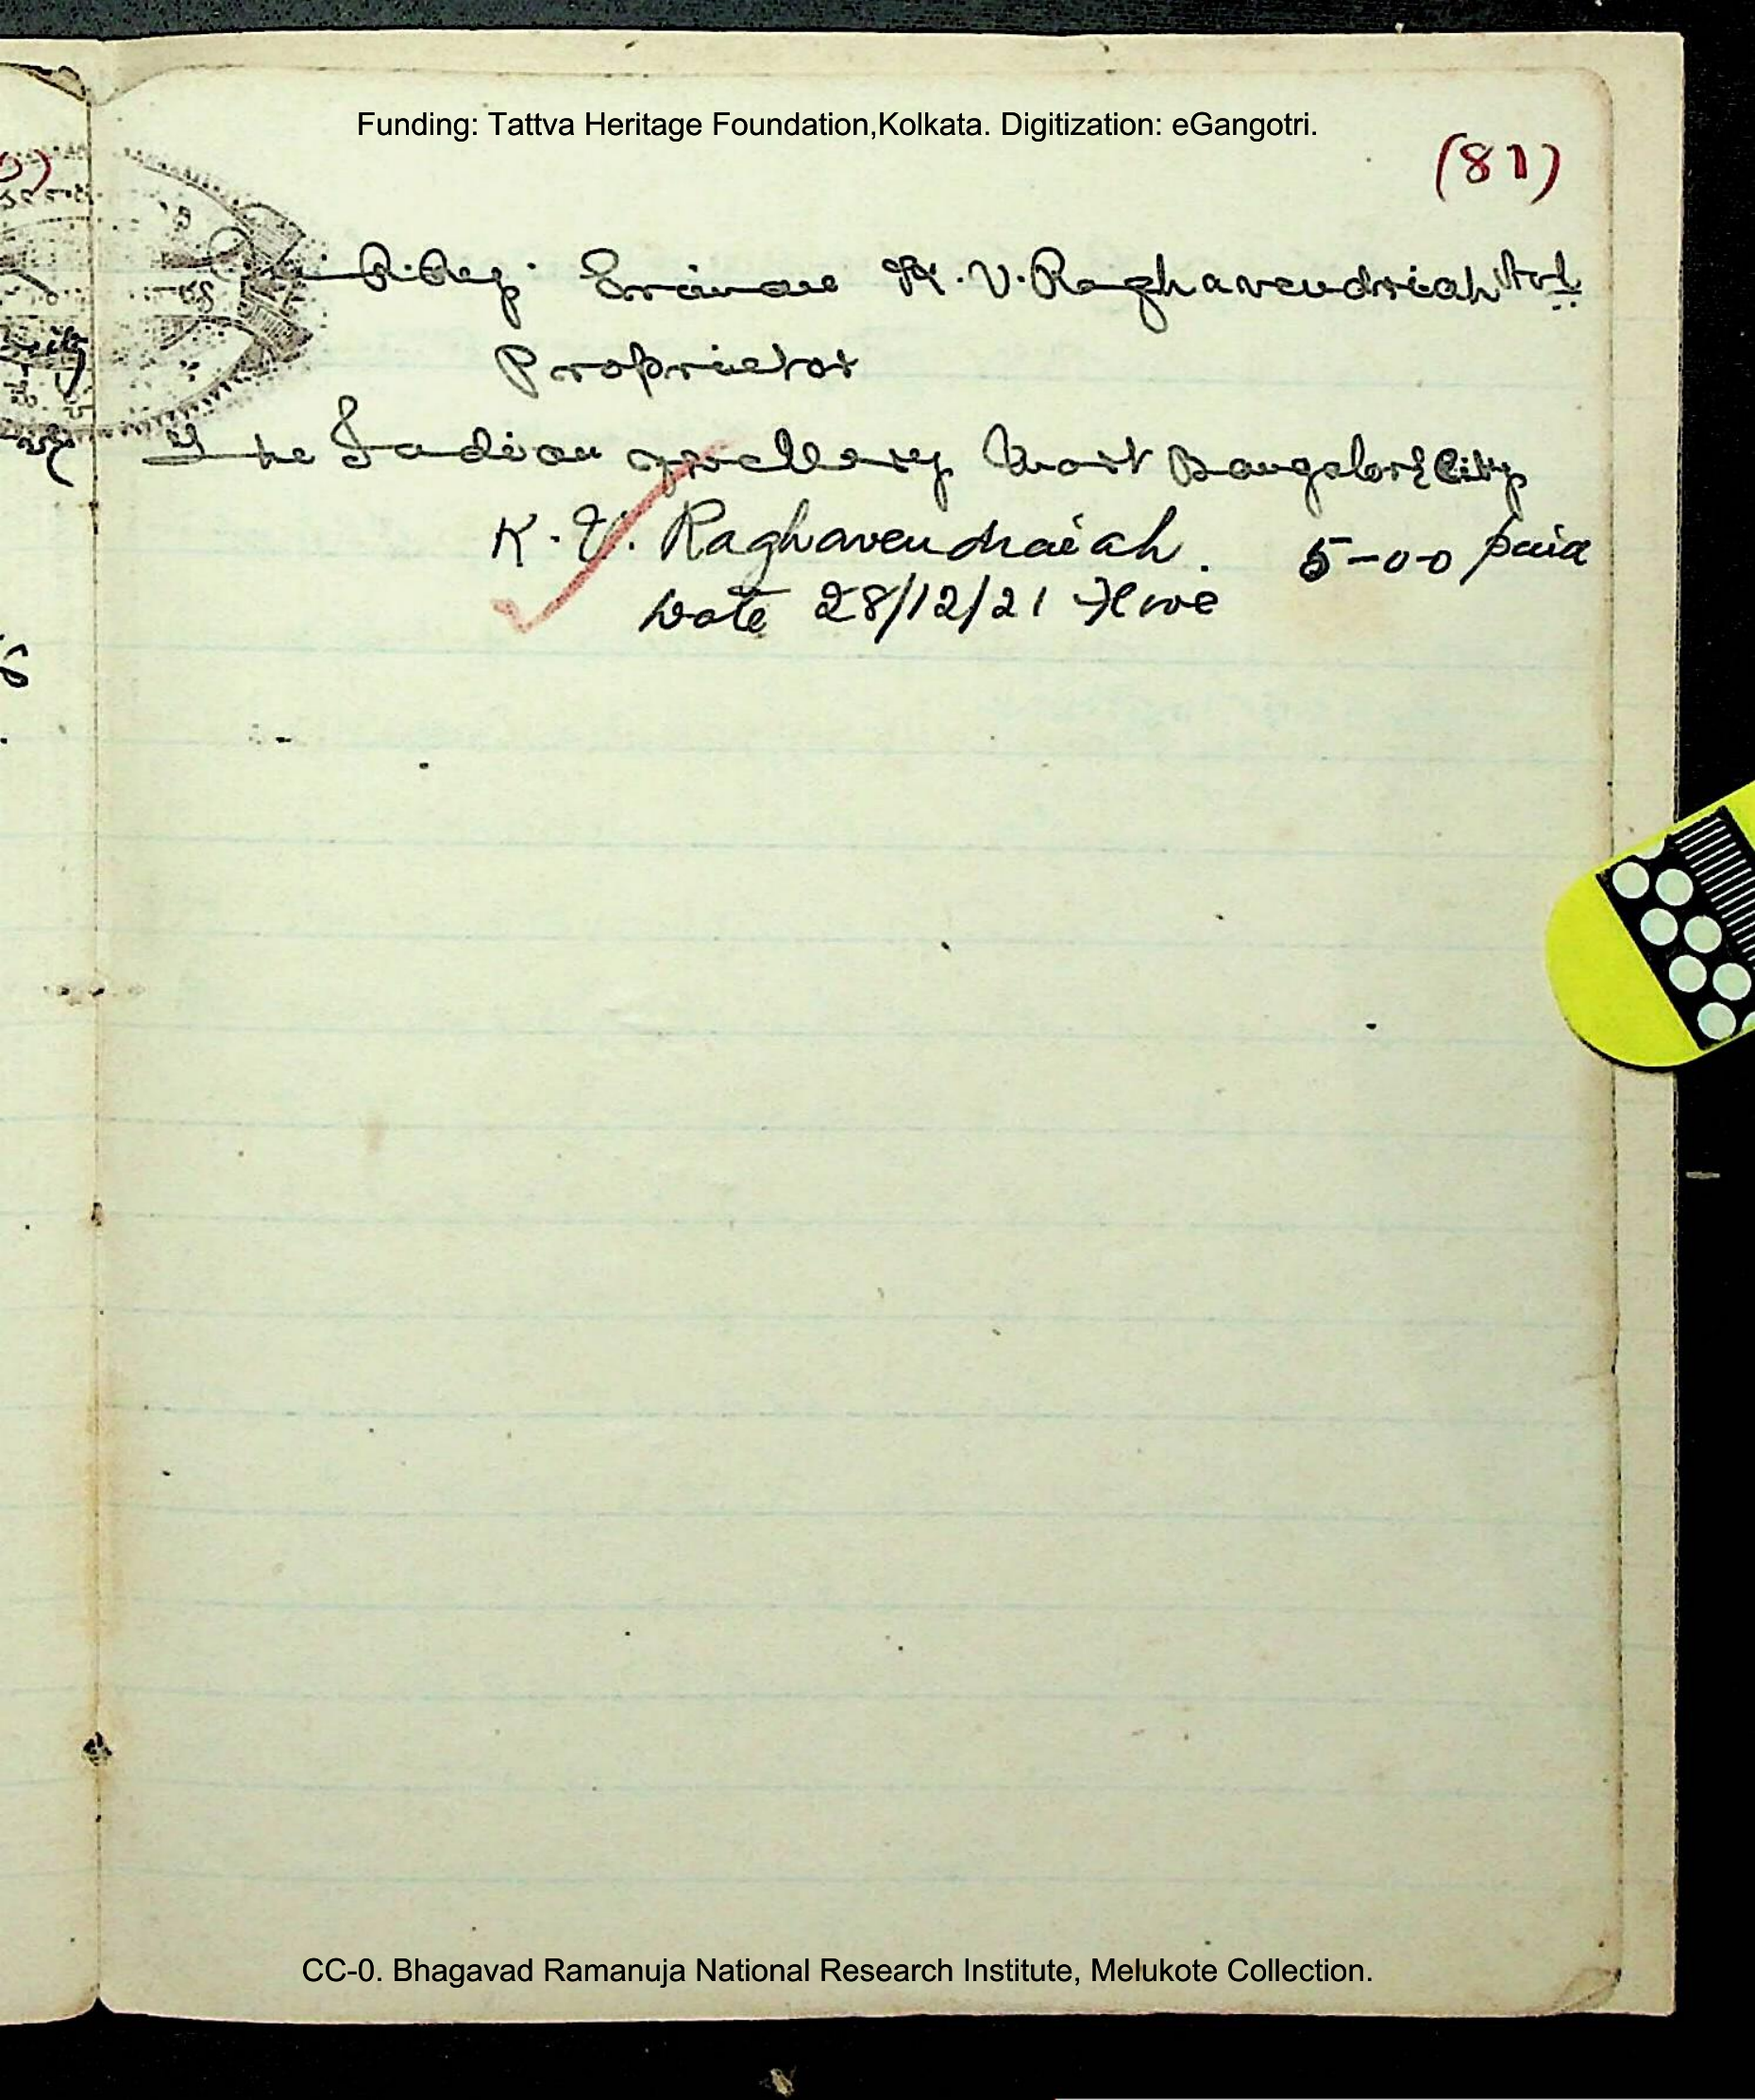 Funding: Tattva Heritage Foundation,Kolkata. Digitization: eGangotri.
(81)
K.V. Raghavendriah
Proprietor
The Indian Jewellery Mart Bangalore City
K.V. Raghavendraiah. 5-00 paid
Date 28/12/21
CC-0. Bhagavad Ramanuja National Research Institute, Melukote Collection.